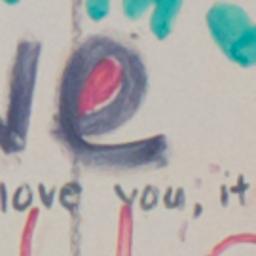 ve
love you, it